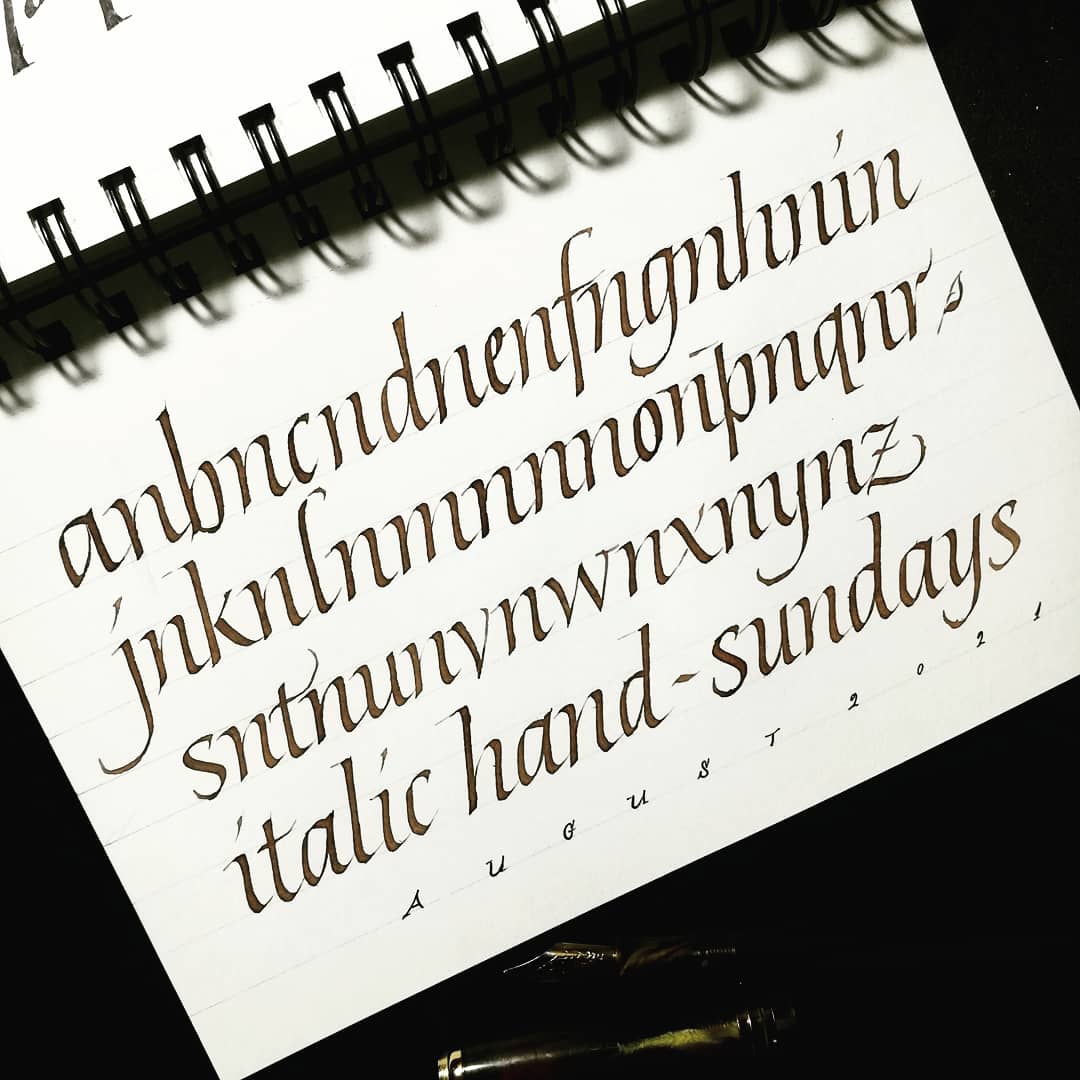 anbncndnenfngnhnin
jnknlnmnnnonpnqnr s
sntnunvnwnxnynz
italic hand-sundays
AUGUST 2021